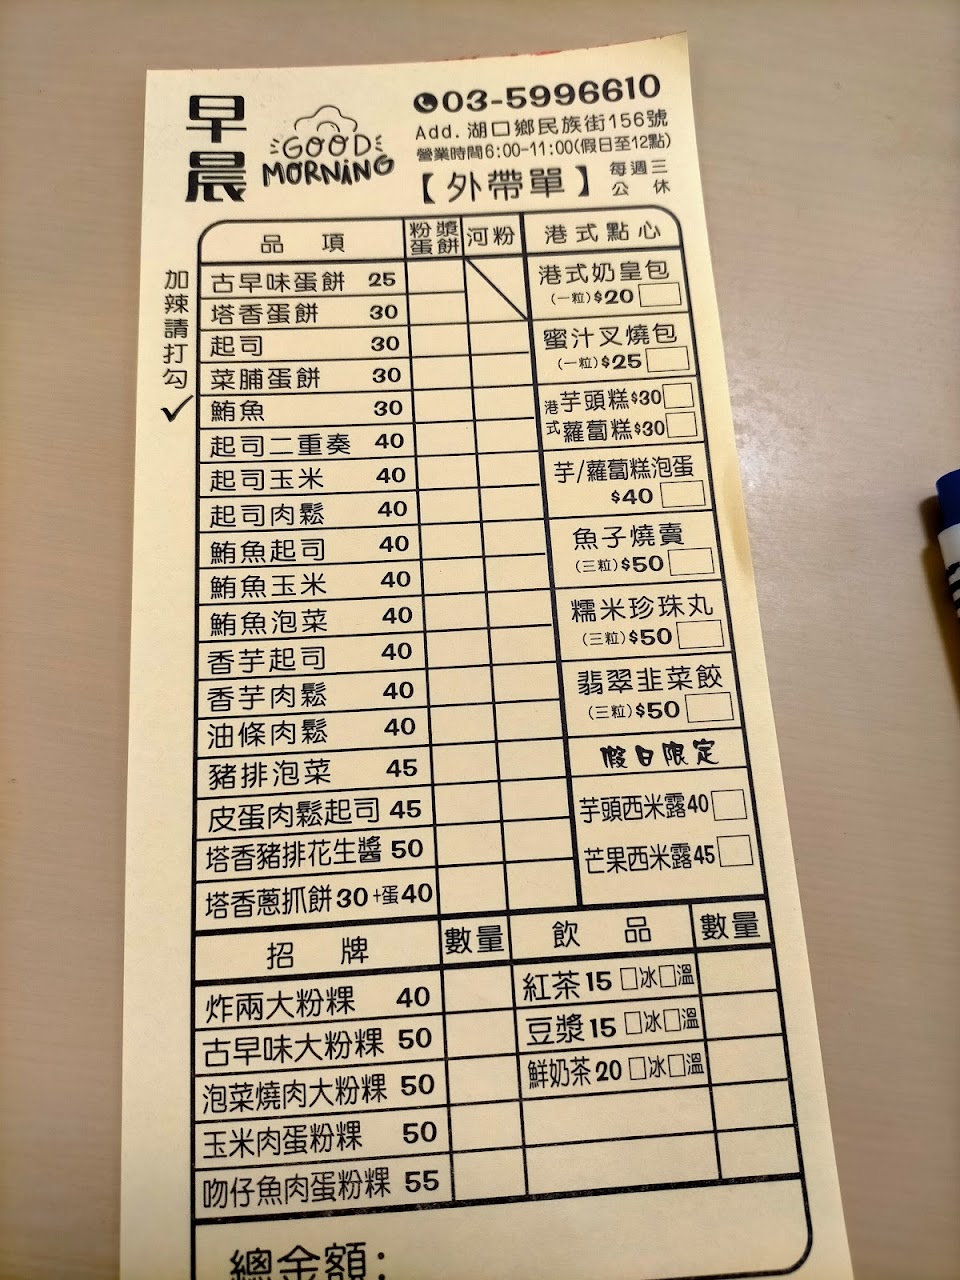 早晨
GOOD MORNING
03-5996610
Add. 湖口鄉民族街156號
營業時間6:00-11:00(假日至12點)
【外帶單】 每週三公休
加辣請打勾✓
品項 粉漿蛋餅 河粉
古早味蛋餅 25
塔香蛋餅 30
起司 30
菜脯蛋餅 30
鮪魚 30
起司二重奏 40
起司玉米 40
起司肉鬆 40
鮪魚起司 40
鮪魚玉米 40
鮪魚泡菜 40
香芋起司 40
香芋肉鬆 40
油條肉鬆 40
豬排泡菜 45
皮蛋肉鬆起司 45
塔香豬排花生醬 50
塔香蔥抓餅 30 +蛋40
港式點心
港式奶皇包
(一粒)$20 □
蜜汁叉燒包
(一粒)$25 □
港式 芋頭糕$30 □
蘿蔔糕$30 □
芋/蘿蔔糕泡蛋
$40 □
魚子燒賣
(三粒)$50 □
糯米珍珠丸
(三粒)$50 □
翡翠韭菜餃
(三粒)$50 □
假日限定
芋頭西米露40 □
芒果西米露45 □
招牌 數量
炸兩大粉粿 40
古早味大粉粿 50
泡菜燒肉大粉粿 50
玉米肉蛋粉粿 50
吻仔魚肉蛋粉粿 55
飲品 數量
紅茶 15 □冰□溫
豆漿 15 □冰□溫
鮮奶茶 20 □冰□溫
總金額: